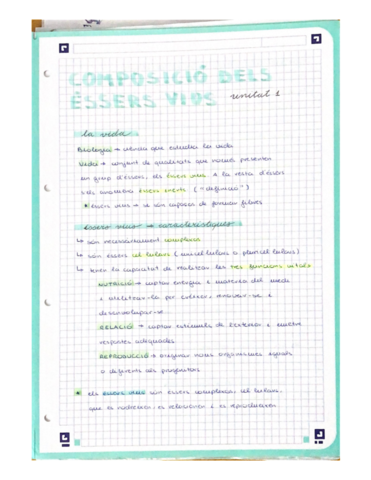 COMPOSICIÓ DELS
ÉSSERS VIUS unitat 1
la vida
Biologia → ciència que estudia la vida
Vida → conjunt de qualitats que només presenten
un grup d'éssers, els éssers vius. A la resta d'éssers
se'ls anomena éssers inerts ("definició")
• éssers vius → són capaços de formar fibres
Éssers vius → característiques
↳ són necessàriament complexos
↳ són éssers cel·lulars (unicel·lulars o pluricel·lulars)
↳ tenen la capacitat de realitzar les tres funcions vitals
NUTRICIÓ → captar energia i matèria del medi
i utilitzar-la per créixer, renovar-se i
desenvolupar-se
RELACIÓ → captar estímuls de l'exterior i emetre
respostes adequades
REPRODUCCIÓ → originar nous organismes iguals
o diferents als progenitors
• els éssers vius són éssers complexos, cel·lulars,
que es nodreixen, es relacionen i es reprodueixen